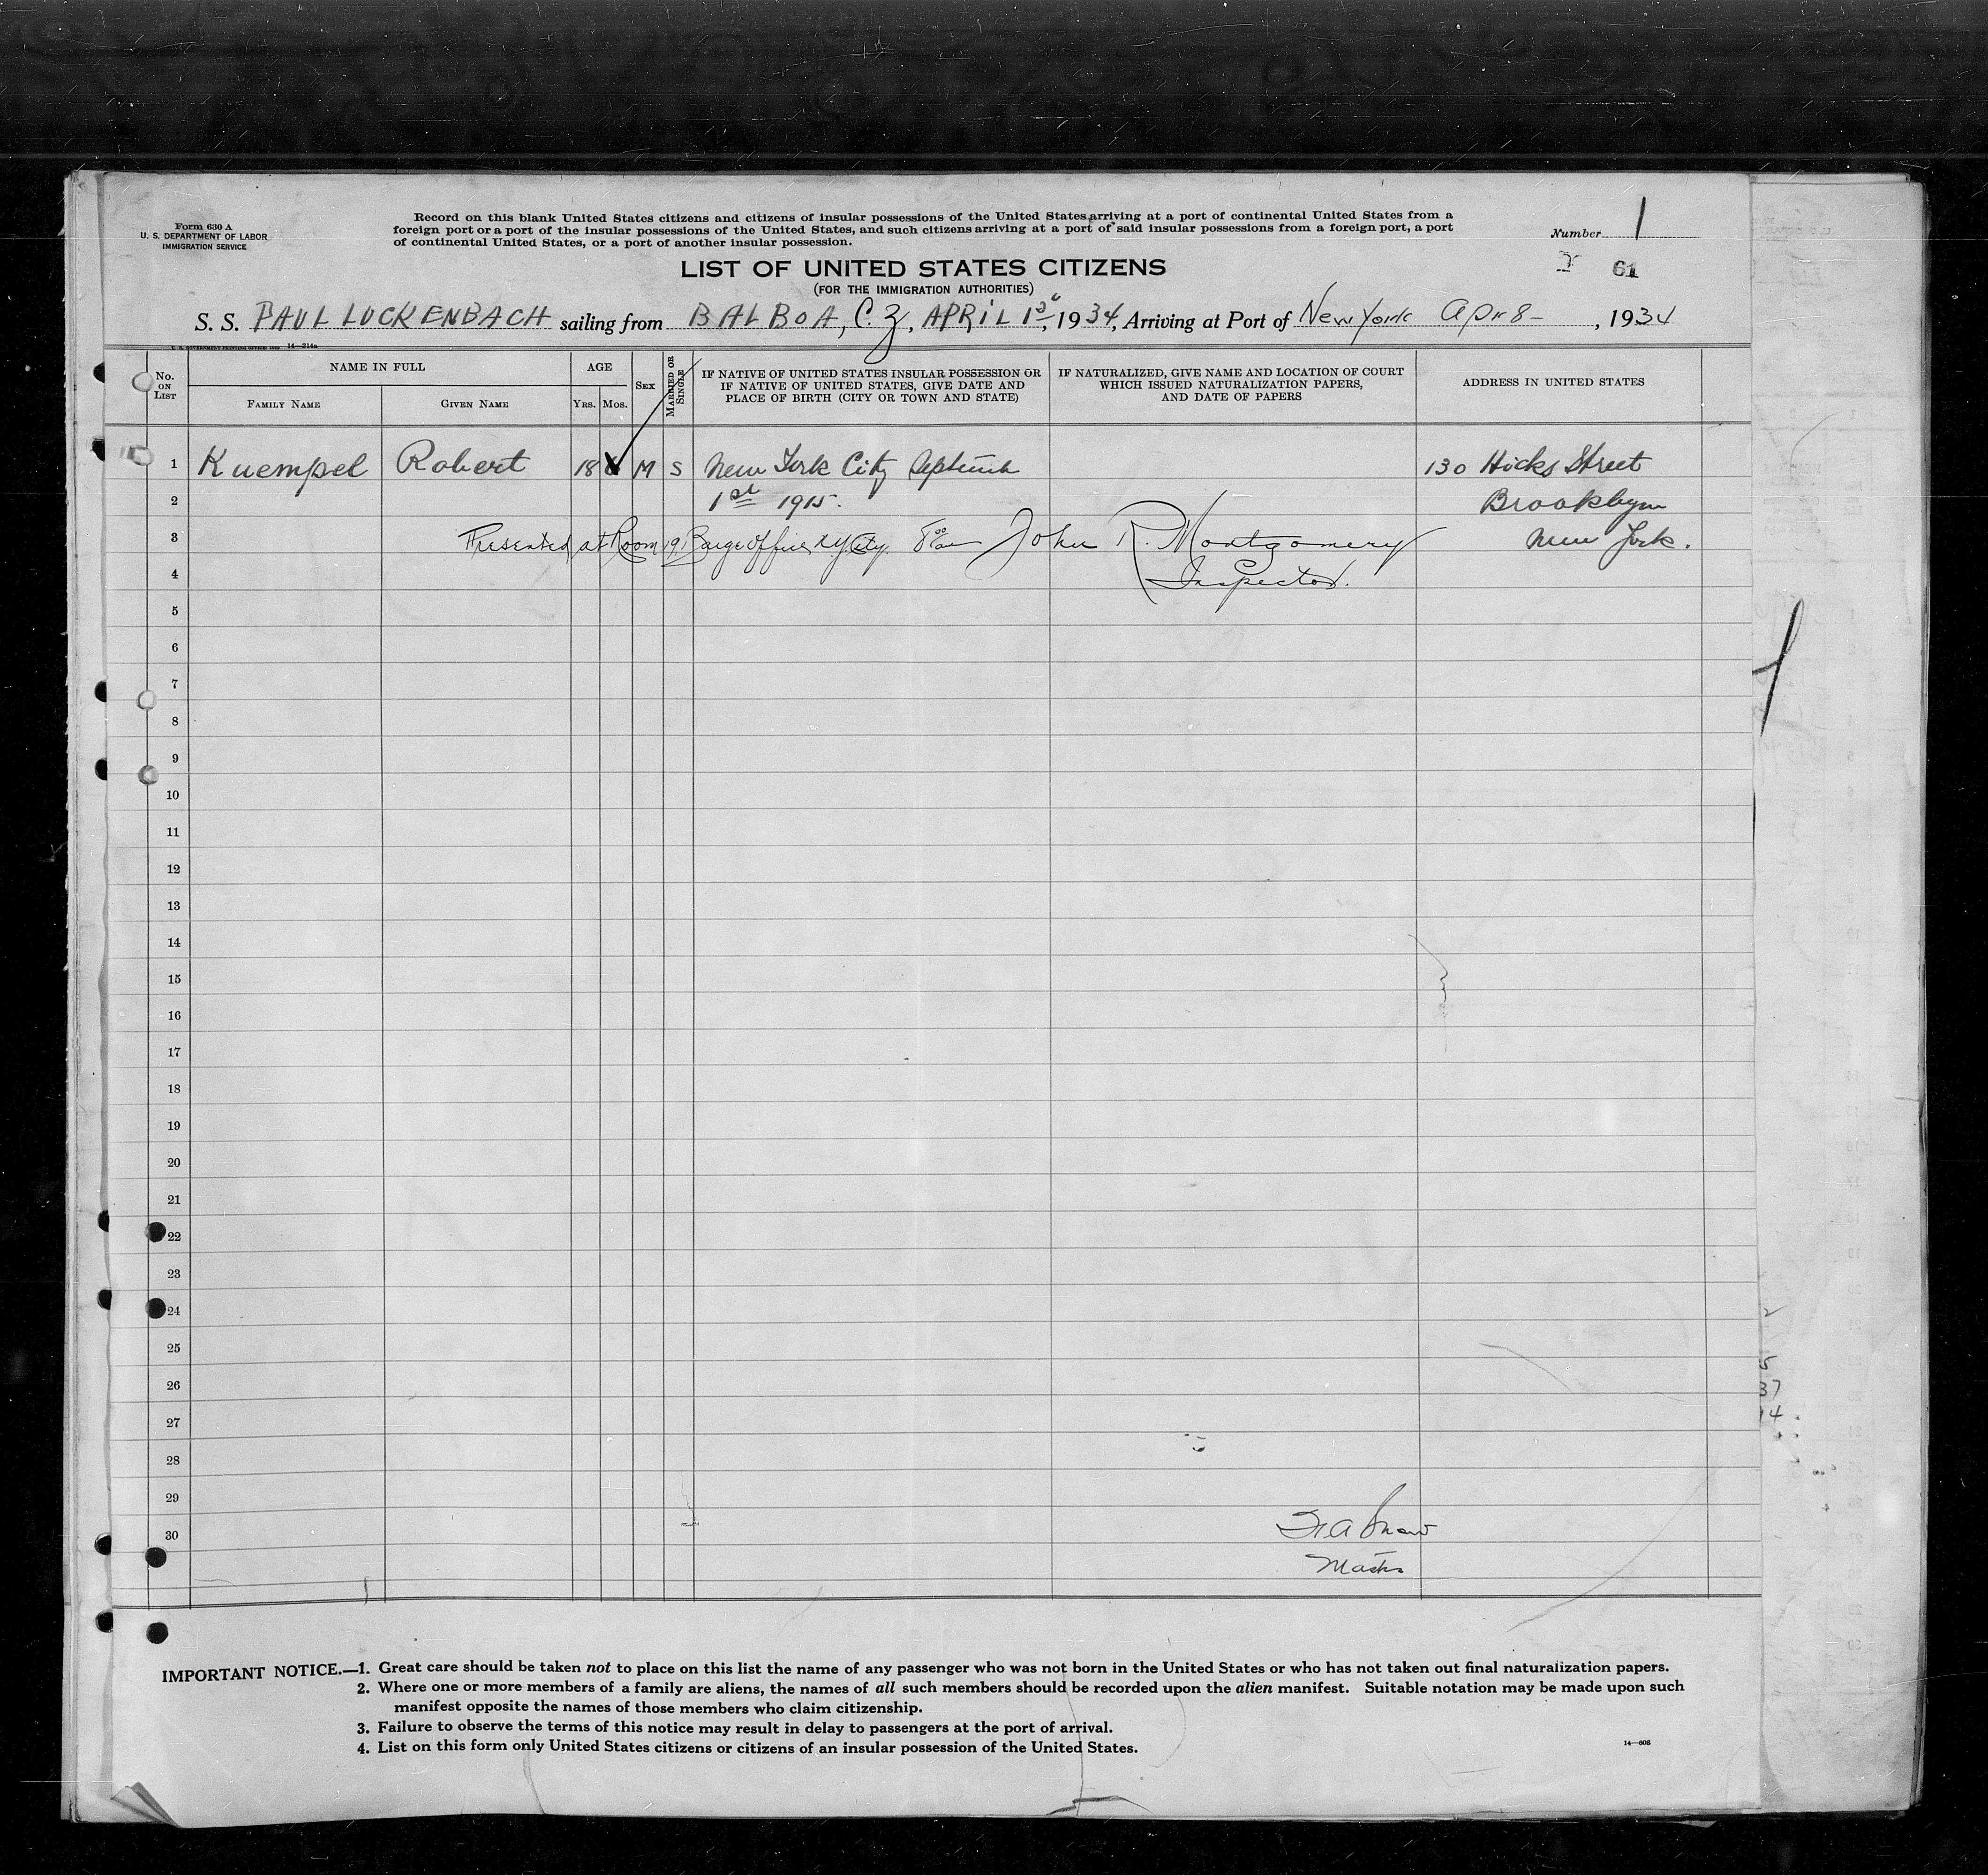 Form 630 A
U. S. DEPARTMENT OF LABOR
IMMIGRATION SERVICE
Record on this blank United States citizens and citizens of insular possessions of the United States arriving at a port of continental United States from a
foreign port or a port of the insular possessions of the United States, and such citizens arriving at a port of said insular possessions from a foreign port, a port
of continental United States, or a port of another insular possession.
Number 1
61
LIST OF UNITED STATES CITIZENS
(FOR THE IMMIGRATION AUTHORITIES)
S. S. PAUL LUCKENBACH sailing from BALBOA, C. Z., APRIL 1st, 1934, Arriving at Port of New York Apr 8 - , 1934
14—214a
No. ON LIST
NAME IN FULL
FAMILY NAME
GIVEN NAME
AGE
YRS. MOS.
SEX
MARRIED OR SINGLE
IF NATIVE OF UNITED STATES INSULAR POSSESSION OR
IF NATIVE OF UNITED STATES, GIVE DATE AND
PLACE OF BIRTH (CITY OR TOWN AND STATE)
IF NATURALIZED, GIVE NAME AND LOCATION OF COURT
WHICH ISSUED NATURALIZATION PAPERS,
AND DATE OF PAPERS
ADDRESS IN UNITED STATES
1 Kuempel Robert 18 M S New York City Septemb 130 Hicks Street
2 1st 1915. Brooklyn
3 Presented at Room 19, Barge Office, N.Y. City. John R. Montgomery New York.
4 Inspector.
5
6
7
8
9
10
11
12
13
14
15
16
17
18
19
20
21
22
23
24
25
26
27
28
29
30
Master
IMPORTANT NOTICE.—1. Great care should be taken not to place on this list the name of any passenger who was not born in the United States or who has not taken out final naturalization papers.
2. Where one or more members of a family are aliens, the names of all such members should be recorded upon the alien manifest. Suitable notation may be made upon such
manifest opposite the names of those members who claim citizenship.
3. Failure to observe the terms of this notice may result in delay to passengers at the port of arrival.
4. List on this form only United States citizens or citizens of an insular possession of the United States.
14—608
37
14